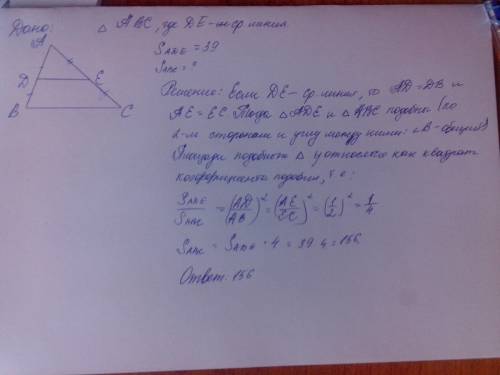 Дано:
△ ABC, где DE - ср линия.
S ADE = 39
S ABC = ?
A
D
E
B
C
Решение: Если DE - ср линия, то AD = DB и
AE = EC Тогда △ ADE и △ ABC подобны (по
2-м сторонам и углу между ними: ∠B - общий)
Площади подобных △ у относятся как квадрат
коэффициента подобия, т.е:
S ADE / S ABC = (AD / AB)² = (AE / EC)² = (1 / 2)² = 1 / 4
S ABC = S ADE · 4 = 39 · 4 = 156
Ответ: 156